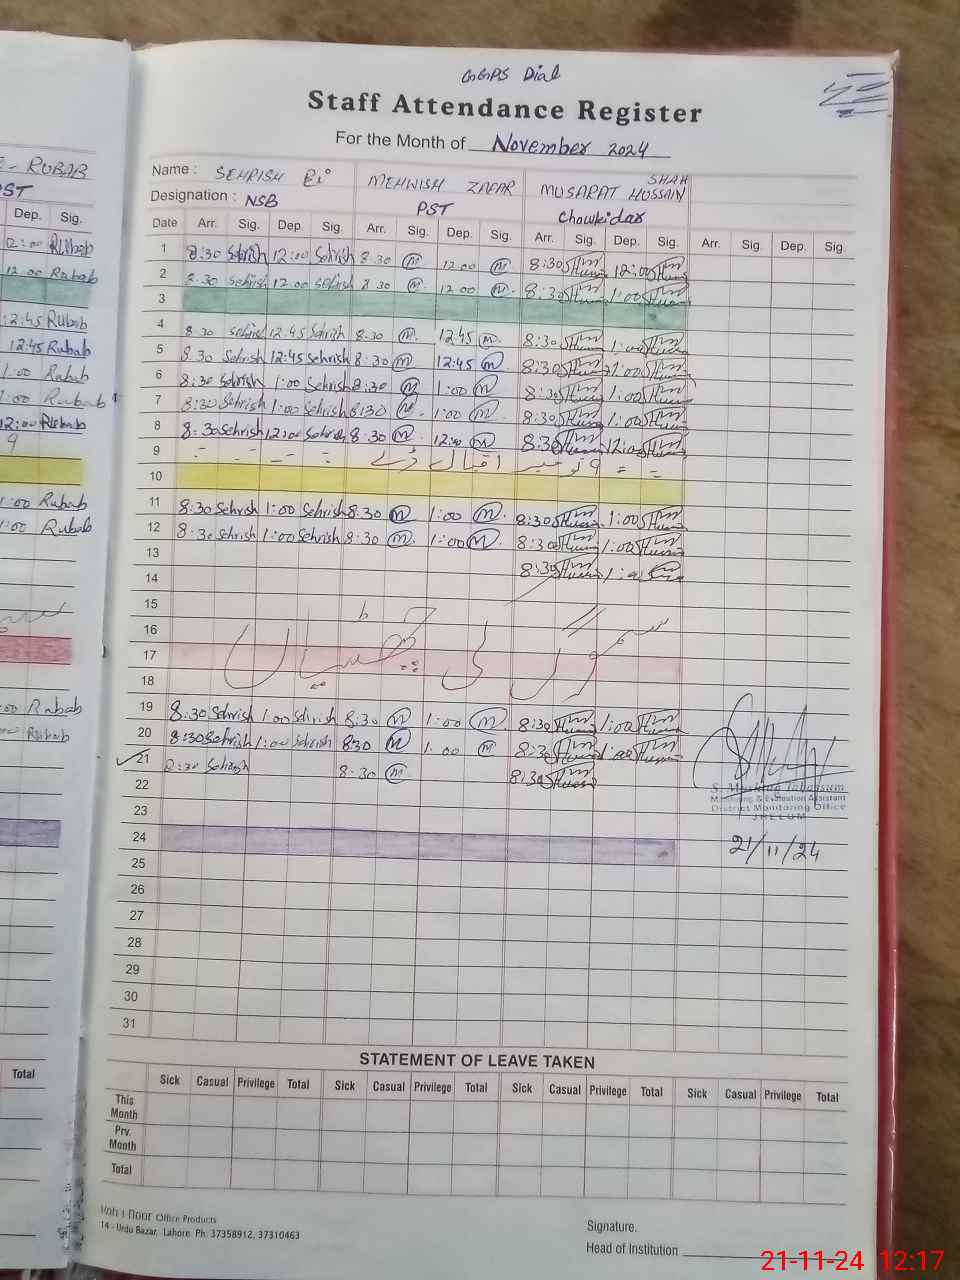 GGPS Dial
Staff Attendance Register
For the Month of November 2024
E - RUBAB
PST
Dep. Sig.
12:00 Rubab
12.00 Rubab
12:45 Rubab
12:45 Rubab
1:00 Rubab
1:00 Rubab
12:00 Rubab
9
1:00 Rubab
1:00 Rubab
:00 Rubab
Rubab
Total
Name : SEHRISH Bi MEHWISH ZAFAR MUSARAT HUSSAIN SHAH
Designation : NSB PST Chowkidar
Date Arr. Sig. Dep. Sig. Arr. Sig. Dep. Sig. Arr. Sig. Dep. Sig. Arr. Sig. Dep. Sig.
1 8:30 Sehrish 12:00 Sehrish 8.30 M 12.00 M 8:30 12:00
2 8.30 sehrish 12.00 sehrish 8.30 M 12.00 M 8:30 1:00
3
4 8.30 sehrish 12.45 Sehrish 8.30 M 12.45 M 8:30 1:00
5 8.30 Sehrish 12:45 Sehrish 8:30 M 12:45 M 8:30 1:00
6 8:30 Sehrish 1:00 Sehrish 8:30 M 1:00 M 8:30 1:00
7 8:30 Sehrish 1:00 Sehrish 8:30 M 1:00 M 8:30 1:00
8 8:30 Sehrish 12:00 Sehrish 8:30 M 12:00 M 8:30 12:00
9 ۹ نومبر اقبال ڈے
10
11 8:30 Sehrish 1:00 Sehrish 8:30 M 1:00 M 8:30 1:00
12 8:30 Sehrish 1:00 Sehrish 8:30 M 1:00 M 8:30 1:00
13 8:30
14
15
16 سموگ کی چھٹیاں
17
18
19 8:30 Sehrish 1:00 Sehrish 8:30 M 1:00 M 8:30 1:00
20 8:30 Sehrish 1:00 Sehrish 8:30 M 1:00 M 8:30 1:00
21 8:30 Sehrish 8:30 M 8:30
22
23
24
25
26
27
28
29
30
31
Monitoring & Evaluation Assistant
District Monitoring Office
JHELUM
21/11/24
STATEMENT OF LEAVE TAKEN
Sick Casual Privilege Total Sick Casual Privilege Total Sick Casual Privilege Total Sick Casual Privilege Total
This Month
Prv. Month
Total
Koh i Noor Office Products
14 - Urdu Bazar, Lahore. Ph: 37358912, 37310463
Signature.
Head of Institution
21-11-24 12:17